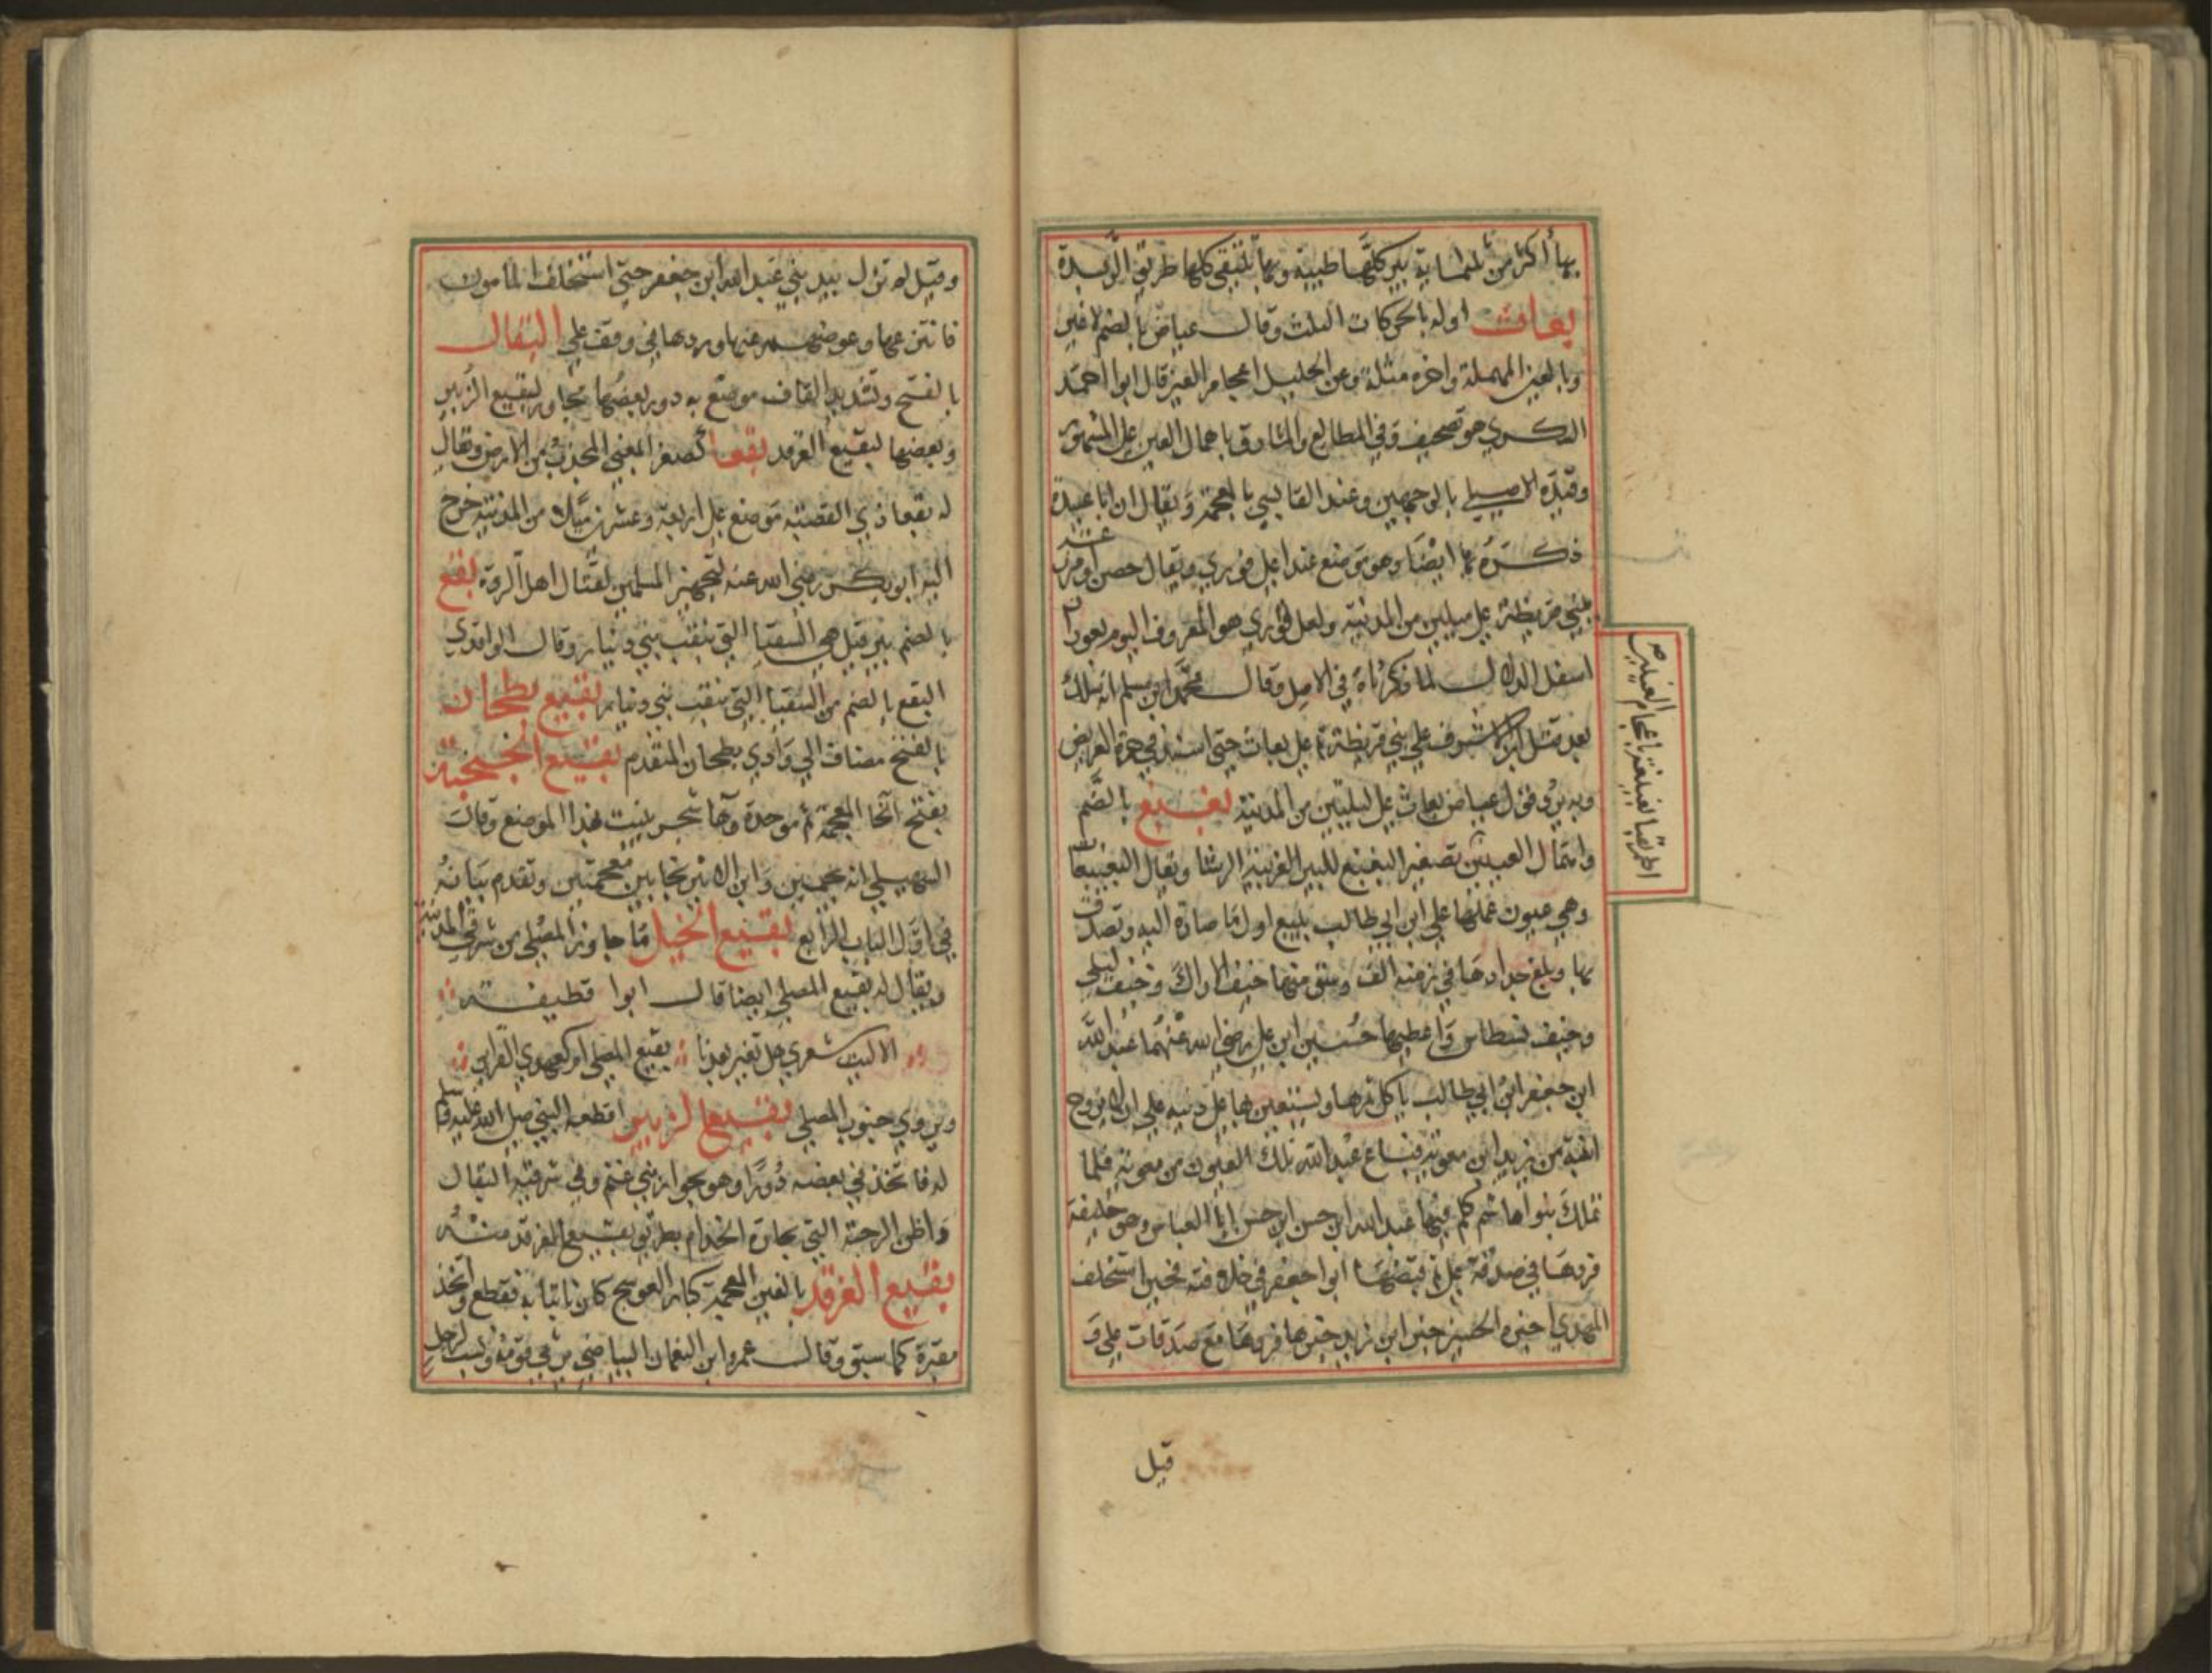 بها أكثر من ثلثماية بير كلها طيبة وبها يلتقي كلها طريق الربدة
بعاث اوله بالحركات الثلث وقال عياض بالضم لا غير
وبالعين المهملة واخره مثلثة وعن الخليل اعجام الغين قال ابوا احمد
السكري هو تصحيف وفي المطالع والمشارق باهمال العين على المشهور
وقيده الاصيلي بالوجهين وعند القابسي بالمعجمة ويقال ان ابا عبيدة
ذكره بها ايضا وهو موضع عند اعلى قوري ويقال حصن او مزرعة
لبني قريظة على ميلين من المدينة ولعل قوري هو المعروف اليوم بقوران
اسفل الدلال لما ذكرناه في الاصل وقال محمد ابن مسلم انه سلك
بعد قتل ابن الاشرف على بني قريظة ثم على بعاث حتى اسند في حرة العريض
وبه يرد قول عياض بعاث على ليلتين من المدينة بغيبغ بالضم
واهمال الغيبين تصغير البغبغ للبير القريبة الرشا ويقال البغيبغات
وهي عيون عملها علي ابن ابي طالب بينبع اول ما صارة اليه وتصدق
بها وبلغ جدادها في زمنه الف وسق منها خيف الاراك وخيف ليلى
وخيف نسطاس واعطيها حسين ابن علي رضي الله عنهما عبد الله
ابن جعفر ابن ابي طالب ياكل ثمرها ويستعين بها على دنيه على ان لا يزوج
ابنته من يزيد ابن معوية فباع عبد الله تلك العيون من معوية فلما
تملك بنوا هاشم كلم فيها عبد الله ابن حسن ابن حسن ابا العباس وهو خليفة
فردها في صدقة علي ثم قبضها ابوا جعفر في خلافته فحين استخلف
المهدي اخبره الحسن ابن زيد خبرها فردها مع صدقات علي و
اطريقا لغيلغة باعجام الغينين
قيل
وقيل لم تزل بيد بني عبد الله ابن جعفر حتى استخلف المامون
فانتزعها وعوضهم عنها وردها في وقف علي البقال
بالفتح وتشديد القاف موضع به دور بعضها مجاور لبقيع الزبير
وبعضها لبقيع الغرقد بقعا كصغر المغبي المجذب من الارض ويقال
له بقعا ذي القصة موضع على اربعة وعشرين ميلا من المدينة خرج
اليه ابو بكر رضي الله عنه لتجهيز المسلمين لقتال اهل الردة بقع
بالضم بير قيل هي السقيا التي بنقب بني دينار وقال الواقدي
البقع بالضم من السقيا التي بنقب بني دينار بقيع بطحان
بالفتح مضاف الى وادي بطحان المتقدم بقيع الخبجبة
بفتح الخا المعجمة ثم موحدة وها شجر ينبت بهذا الموضع وقالت
السهيلي انه بجيمين وابن الاثير بخايين معجمتين وتقدم بيانه
في اول الباب الرابع بقيع الخيل ما جاور المصلى من شرقي المدينة
ويقال له بقيع المصلى ايضا قال ابوا قطيفة
الا ليت شعري هل تغير بعدنا بقيع المصلى ام كعهدي القراين
ويروي جنوب المصلى بقيع الزبير اقطعه النبي صلى الله عليه وسلم
له فاتخذ في بعضه دورا وهو بجوار بني غنم وفي شرقيه البقال
واظن الرحبة التي بحارة الخدام بطريق بقيع الغرقد منه
بقيع الغرقد بالغين المعجمة كبار العوسج كان نابتا به فقطع واتخذ
مقبرة كما سبق وقال عمرو ابن النعمان البياضي يرثي قومه ونسب لرجل